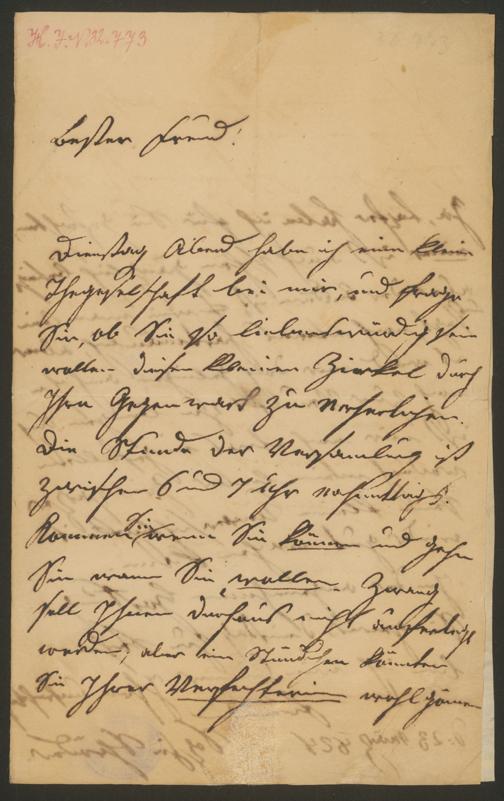 H. I. N. 32.773
Bester Freund!
Dienstag Abend habe ich eine kleine
Theegesellschaft bei mir, und frage
Sie, ob Sie so liebenswürdig sein
wollen diesen kleinen Zirkel durch
Ihre Gegenwart zu verherlichen.
Die Stunde der Versamlung ist
zwischen 6 und 7 Uhr nachmittags.
Kommen Sie, wenn Sie können und gehn
Sie wann Sie wollen. Zwang
soll Ihnen durchaus nicht auferlegt
werden; aber ein Stündchen könnten
Sie Ihrer Verfechterin wohl gönnen